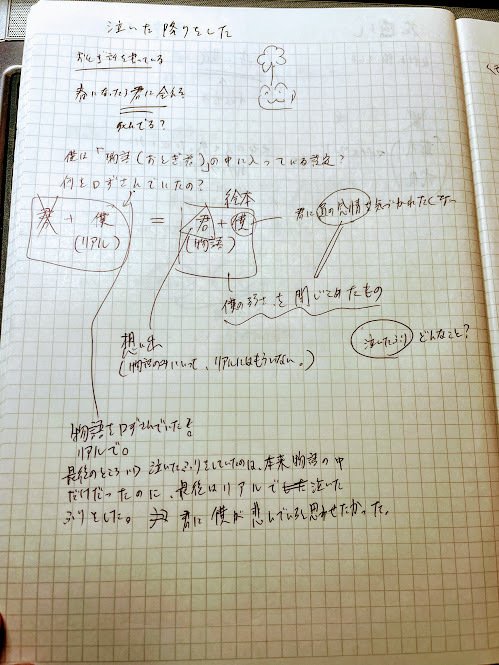 泣いた降りをした
おとぎ話を待っている
春になったら君に会える
死んでる?
僕は「物語(おとぎ話)」の中に入っている設定?
何を口ずさんでいたの?
絵本
君 + 僕 = 君 + 僕
(リアル)
(物語)
君に 道の感情を気づかれたくない
僕の を閉じこめたもの
想い出
(物語の中にいって、リアルにはもういない。)
泣いたふり どんなこと?
物語を口ずさんでいた
リアルで。
最後のところ 泣いたふりをしていたのは、本来物語の中
だけだったのに、最後はリアルで 泣いた
ふりをした。 君に僕が悲しんでいると思わせたかった。